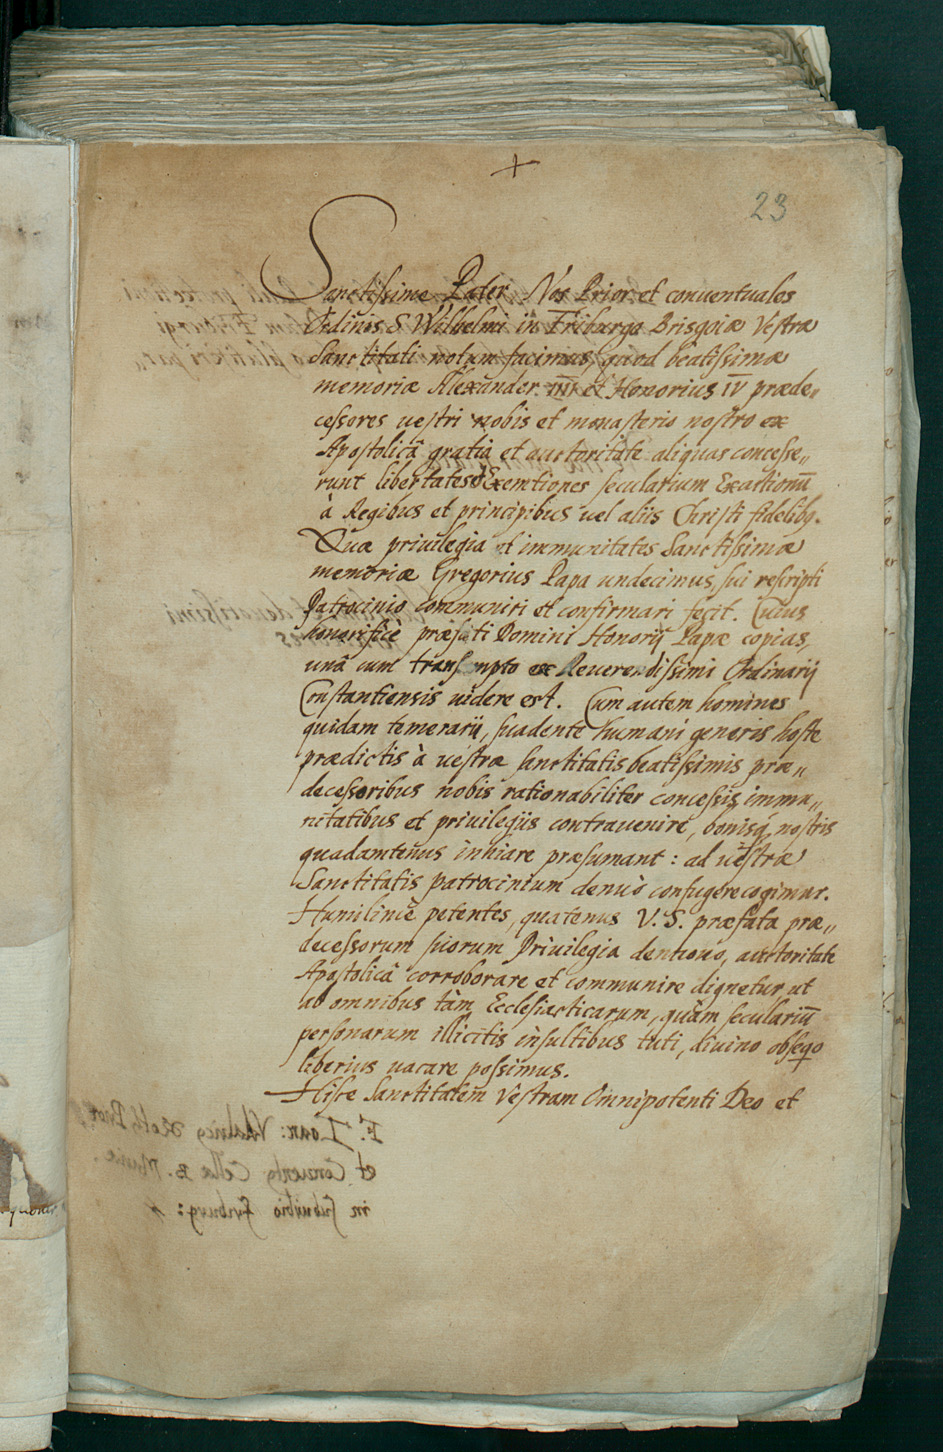 +
23
Sanctissime Pater Nos Prior et conventuales
Ordinis S. Wilhelmi in Friburgo Brisgoiæ Vestræ
Sanctitati notum facimus, quod beatissimæ
memoriæ Alexander IIII et Honorius IV præde„
cessores uestri nobis et monasterio nostro ex
Apostolicâ gratia et auctoritate aliquas concesse„
runt libertates & Exemtiones secularium Exactionū
à Regibus et principibus uel aliis Christi fidelibq.
Quæ priuilegia et immunitates Sanctissimæ
memoriæ Gregorius Papa undecimus, sui rescripti
Patrocinio communiri et confirmari fecit. Cuius
honorificè præfati Domini Honorij Papæ copias,
unâ cum transsumpto ex Reverendissimi Ordinarij
Constantiensis uidere est. Cum autem homines
quidam temerarij, suadente humani generis hoste
prædictis à uestræ sanctitatis beatissimis præ„
decessoribus nobis rationabiliter concessis immu„
nitatibus et priuilegijs contrauenire, bonisq, nostris
quadamtenus inhiare præsumant: ad uestræ
Sanctitatis patrocinium denuò confugere cogimur.
Humilimè petentes, quatenus V. S. præfata præ„
decessorum suorum Priuilegia dentuno, auctoritate
Apostolicâ corroborare et communire dignetur, ut
ab omnibus tàm Ecclesiasticarum, quàm seculariū
personarum illicitis insultibus tuti, diuino obseqo
liberius uacare possimus.
Hisce Sanctitatem Vestram Omnipotenti Deo et